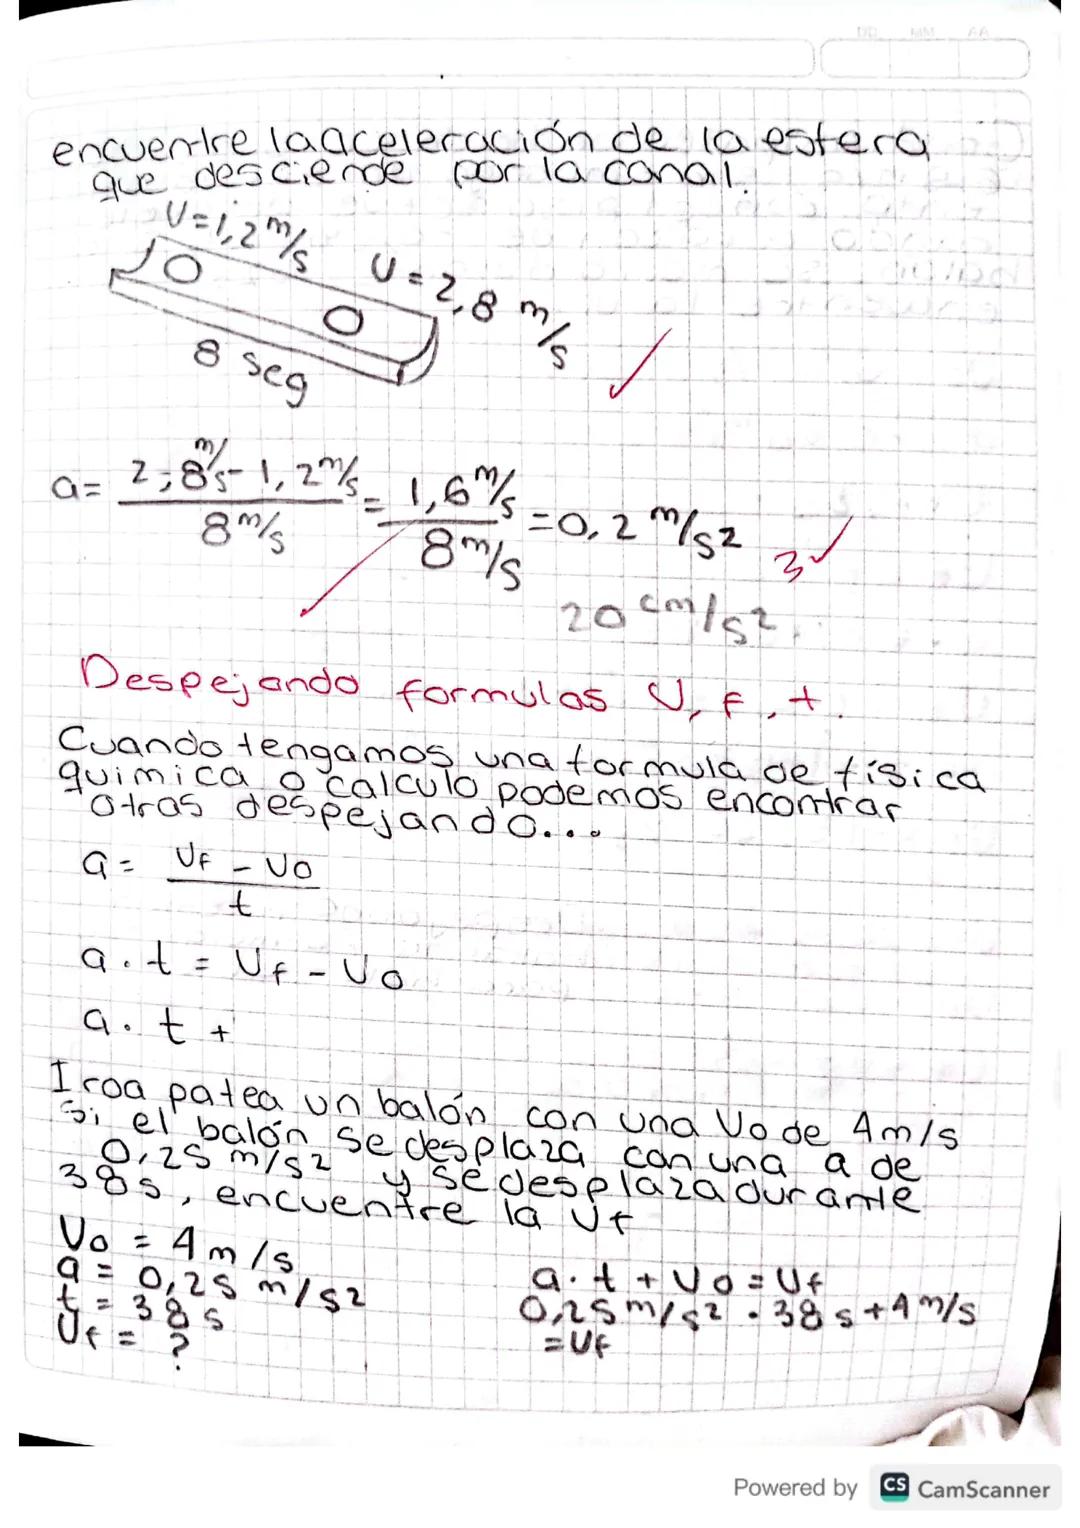 DD MM AA
encuentre la aceleración de la esfera
que desciende por la canal.
V=1,2 m/s
V=2,8 m/s
8 seg
a= 2,8 m/s - 1,2 m/s / 8 m/s = 1,6 m/s / 8 m/s = 0,2 m/s2
3
20 cm/s2.
Despejando formulas V, F, t.
Cuando tengamos una formula de física
quimica o calculo podemos encontrar
otras despejando...
a= VF - VO / t
a. t = Vf - VO
a. t +
Iroa patea un balón con una Vo de 4m/s
Si el balón se desplaza con una a de
0,25 m/s2 y se desplaza durante
38s, encuentre la Vf
Vo = 4 m/s
a = 0,25 m/s2
t = 38 s
Vf = ?
a. t + VO = Vf
0,25 m/s2 . 38 s + 4 m/s
=Vf
Powered by CS CamScanner